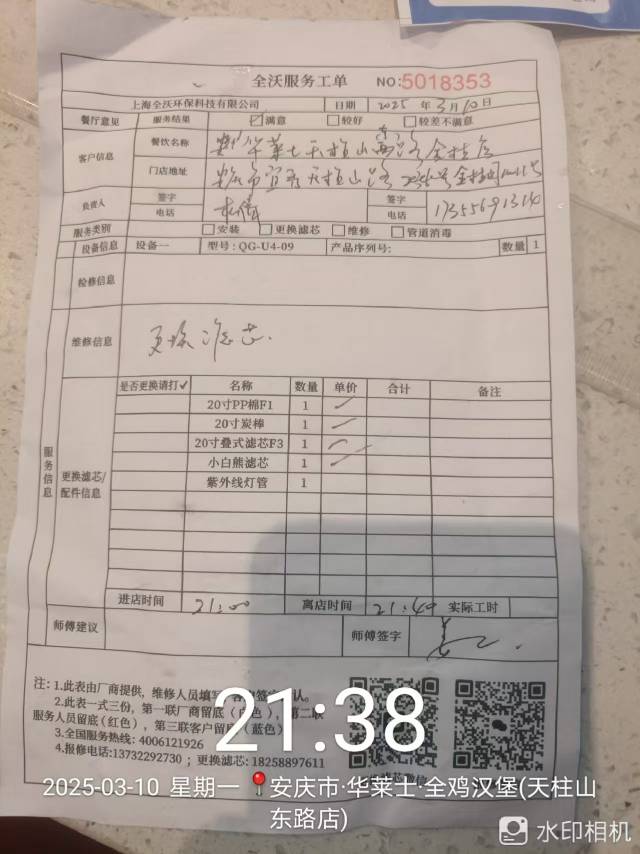 全沃服务工单 NO:5018353
上海全沃环保科技有限公司 日期 2025 年 3 月 10 日
餐厅意见 服务结果 ☑满意 □较好 □较差不满意
客户信息 餐饮名称 华莱士天柱山
门店地址 天柱山路
负责人 签字 签字
电话 电话
服务类别 □安装 □更换滤芯 □维修 □管道消毒
设备信息 设备一 型号:QG-U4-09 产品序列号: 数量 1
检修信息
维修信息 更换滤芯.
是否更换请打✓ 名称 数量 单价 合计 备注
20寸PP棉F1 1
20寸炭棒 1
20寸叠式滤芯F3 1
小白熊滤芯 1
紫外线灯管 1
服务信息
更换滤芯/配件信息
进店时间 21:00 离店时间 21:40 实际工时
师傅建议 师傅签字
注:1.此表由厂商提供,维修人员填写,客户签字确认。
2.此表一式三份,第一联厂商留底(白色),第二联
服务人员留底(红色),第三联客户留底(蓝色)
3.全国服务热线:4006121926
4.报修电话:13732292730;更换滤芯:18258897611
21:38
2025-03-10 星期一 安庆市·华莱士·全鸡汉堡(天柱山
东路店)
水印相机